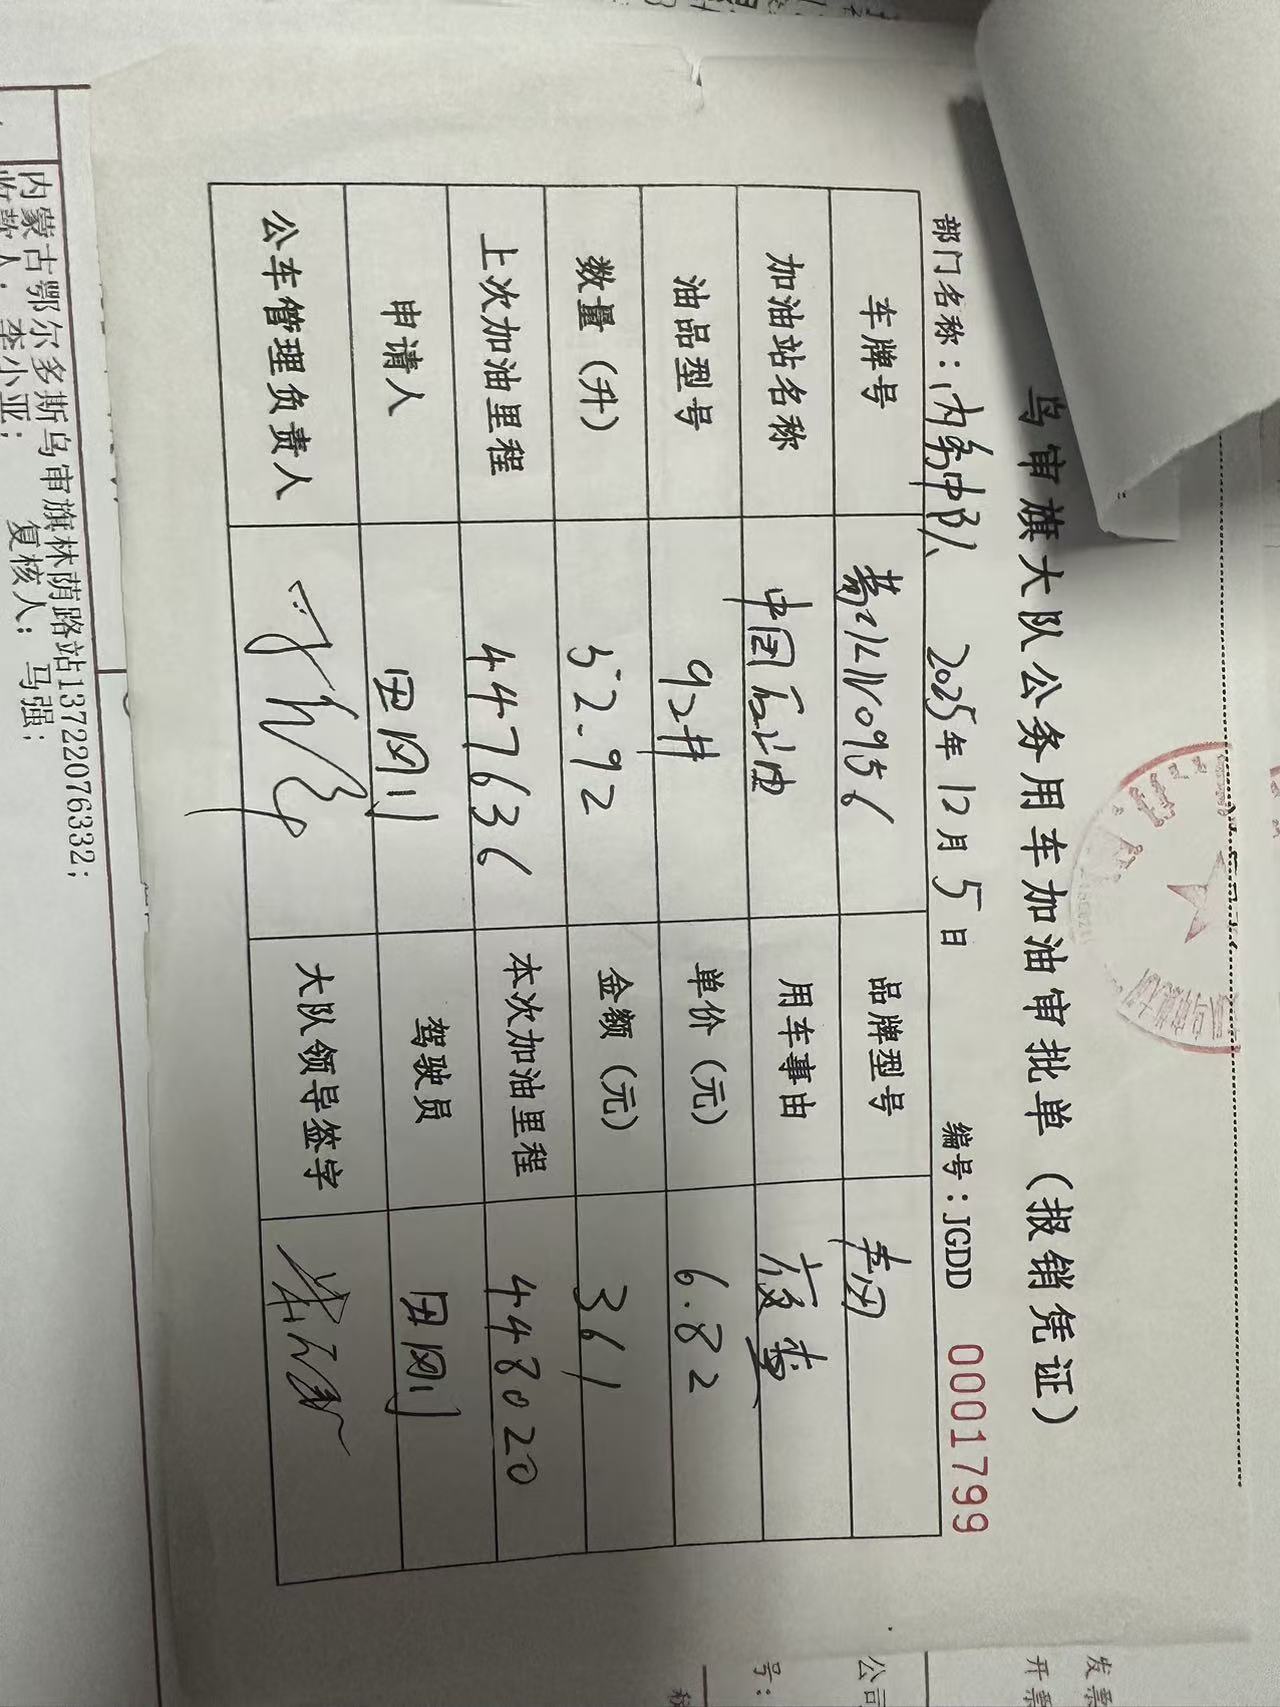 乌审旗大队公务用车加油审批单（报销凭证）
部门名称：内务中队 2025年12月5日 编号：JGDD 0001799
车牌号 品牌型号 丰田
加油站名称 中国石油 用车事由
油品型号 92# 单价（元） 6.82
数量（升） 52.92 金额（元） 361
上次加油里程 447636 本次加油里程 448020
申请人 田刚 驾驶员 田刚
公车管理负责人 大队领导签字
内蒙古鄂尔多斯乌审旗林荫路站13722076332;
收款人：李小亚; 复核人：马强;
发票
开票
公司
号: